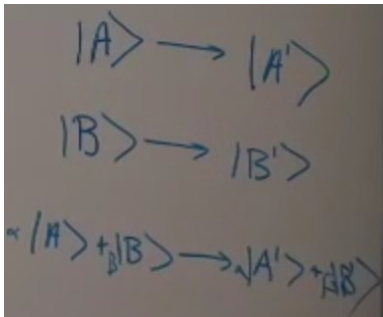 |A⟩ → |A'⟩
|B⟩ → |B'⟩
α|A⟩ + β|B⟩ → α|A'⟩ + β|B⟩